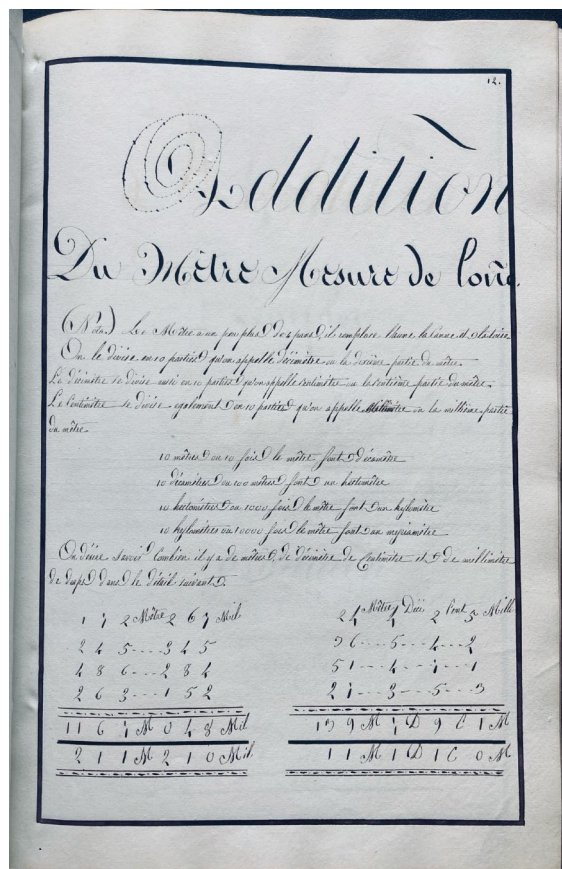 12.
Addition
Du Mètre Mesure de long.
(Nota.) Le Mètre a un peu plus de 4 pans, il remplace l'aune, la Canne et la toise
On le divise en 10 parties qu'on appelle décimètre ou la dixième partie du mètre.
Le décimètre se divise aussi en 10 parties qu'on appelle Centimètre ou la Centième partie du mètre.
Le Centimètre se divise egalement en 10 parties qu'on appelle Millimètre ou la millième partie
du mètre.
10 mètres ou 10 fois le mètre font décamètre
10 décamètres ou 100 mètres font un hectomètre
10 hectomètres ou 1000 fois le mètre font un kylomètre
10 kylomètres ou 10000 fois le mètre font un myriamètre
On désire savoir Combien il y a de mètres, de décimètre de Centimètre et de millimètre
de draps dans le détail suivant.
1 7 2 Mètre 2 6 7 Mil
2 4 5 --- 3 4 5
4 8 6 --- 2 8 4
2 6 3 --- 1 5 2
11 6 7 M 0 4 8 Mil
2 1 1 M 2 1 0 Mil
24 Mètre 4 Déci 2 Cent 5 Mill
36 -- 5 -- 4 -- 2
51 -- 4 -- 7 -- 1
27 -- 3 -- 5 -- 3
13 9 M 7 D 9 C 1 M
1 1 M 1 D 1 C 0 M